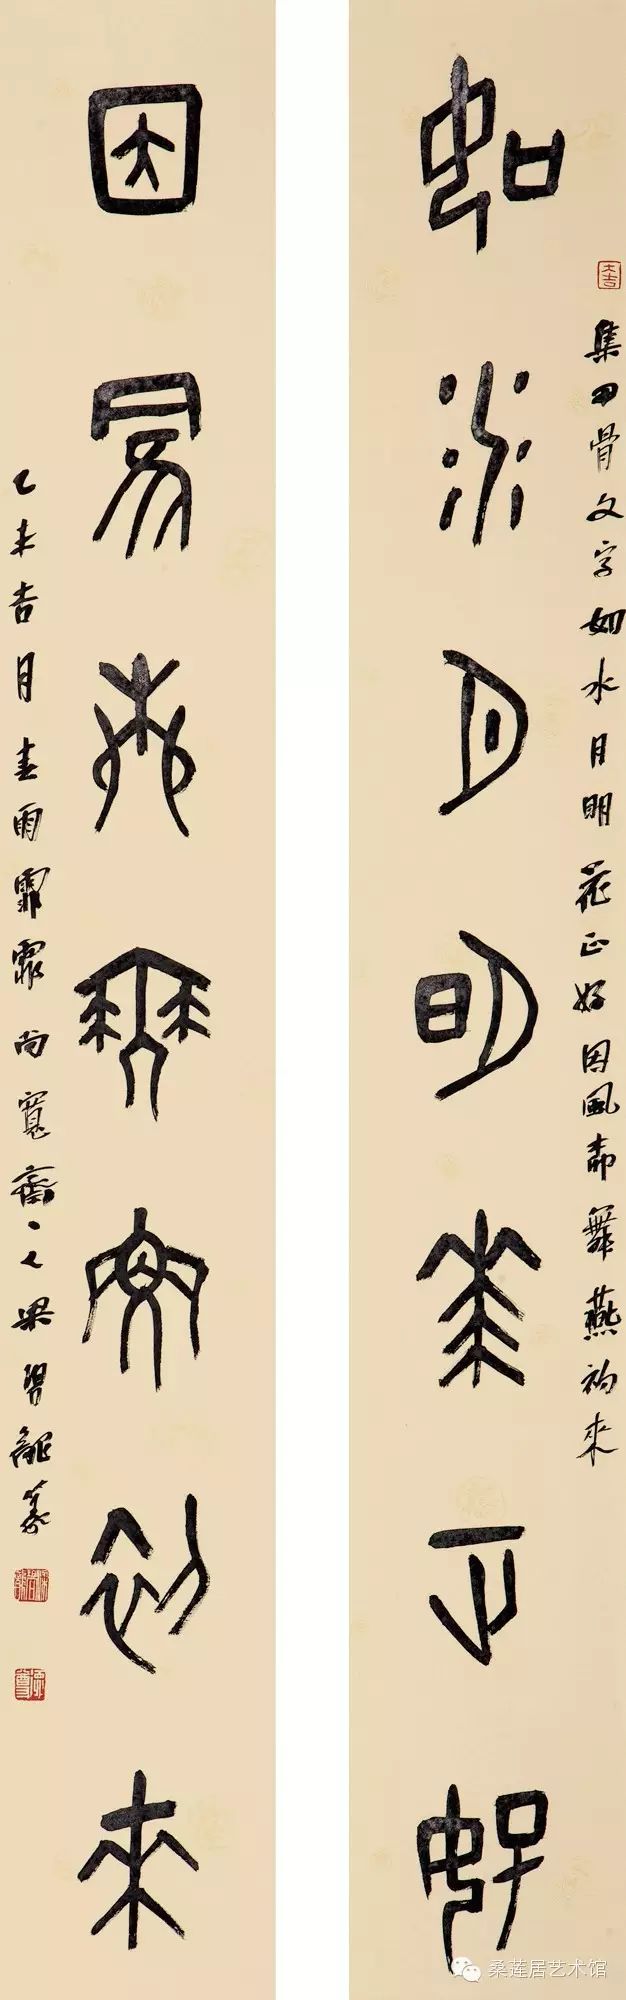 大吉
集甲骨文字如水月明花正好因風舞燕初來
如水月明花正好
因風舞燕初來
乙未吉月春雨霏霏尚寬齋梁篆
桑莲居艺术馆